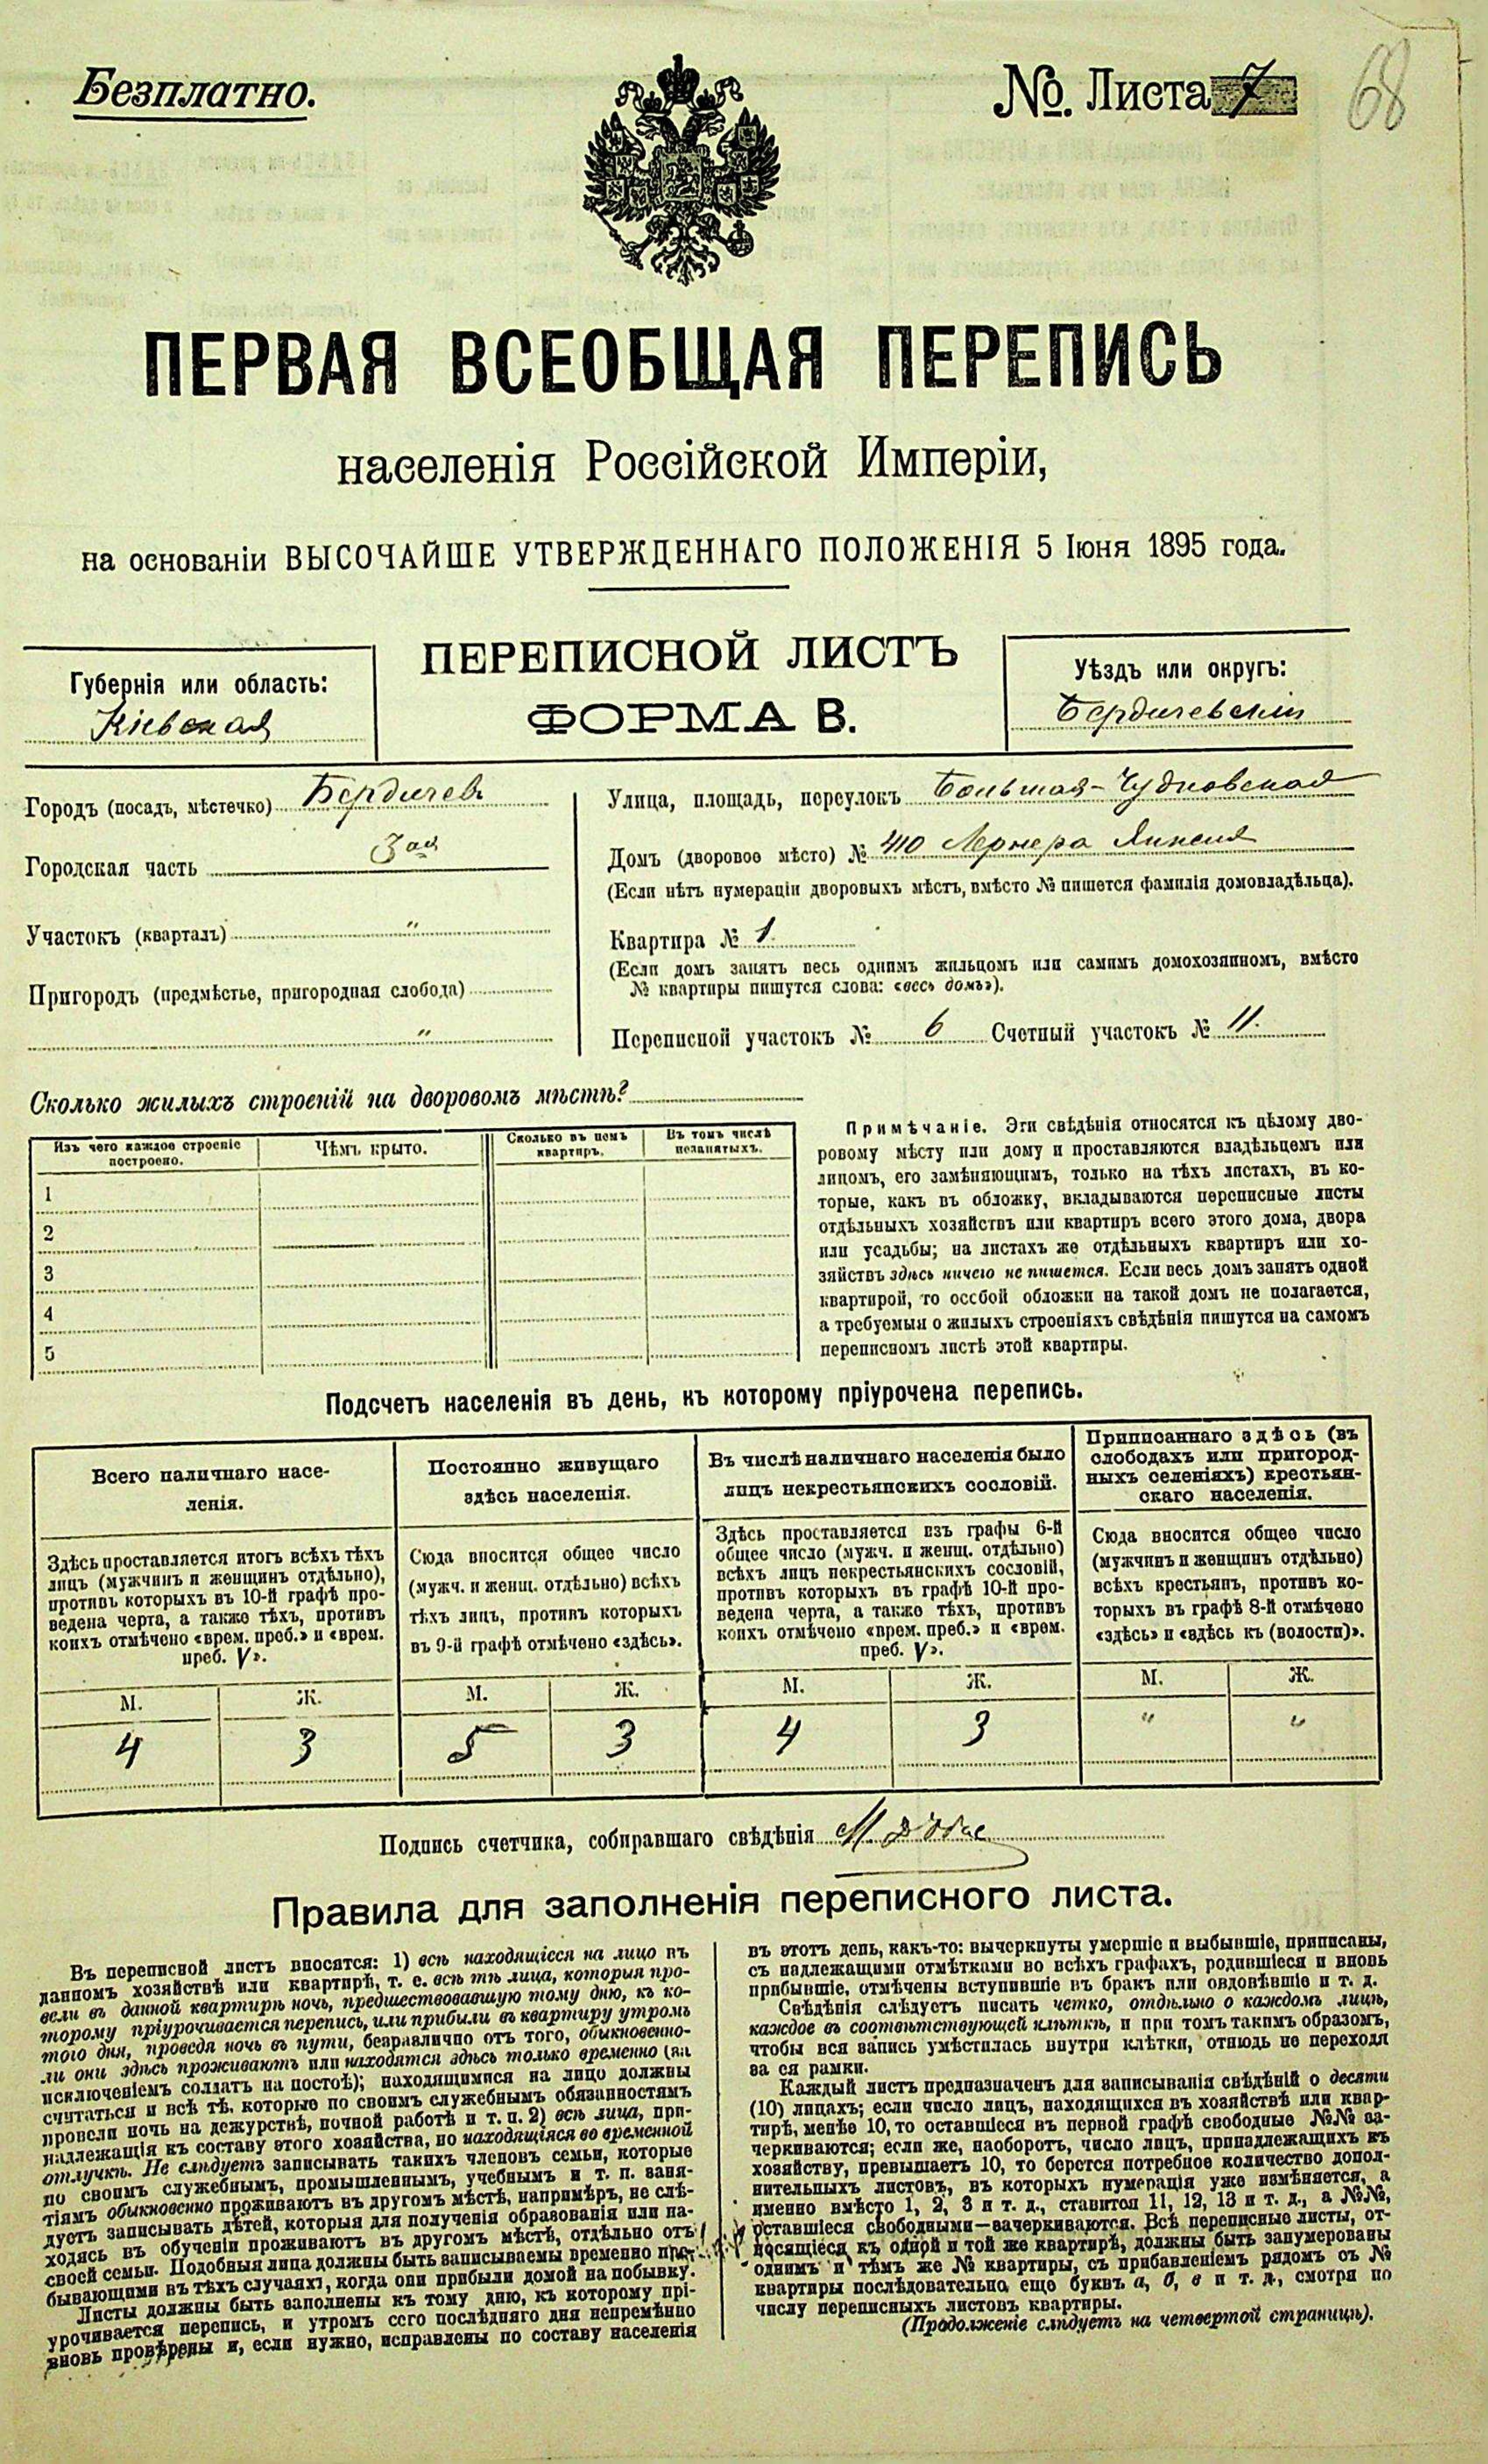 Безплатно.
№. Листа 7
68
ПЕРВАЯ ВСЕОБЩАЯ ПЕРЕПИСЬ
населенія Россійской Имперіи,
на основаніи ВЫСОЧАЙШЕ УТВЕРЖДЕННАГО ПОЛОЖЕНІЯ 5 Іюня 1895 года.
ПЕРЕПИСНОЙ ЛИСТЪ
ФОРМА В.
Губернія или область:
Кіевская
Уѣздъ или округъ:
Бердичевскій
Городъ (посадъ, мѣстечко) Бердичев
Городская часть 3ая
Участокъ (кварталъ) "
Пригородъ (предмѣстье, пригородная слобода)
"
Улица, площадь, переулокъ Большая-Чудновская
Домъ (дворовое мѣсто) № 410 Лернера
(Если нѣтъ нумераціи дворовыхъ мѣстъ, вмѣсто № пишется фамилія домовладѣльца).
Квартира № 1
(Если домъ занятъ весь однимъ жильцомъ или самимъ домохозяиномъ, вмѣсто
№ квартиры пишутся слова: «весь домъ»).
Переписной участокъ № 6 Счетный участокъ № 11.
Сколько жилыхъ строеній на дворовомъ мѣстѣ?
Изъ чего каждое строеніе
построено.
Чѣмъ крыто.
Сколько въ немъ
квартиръ.
Въ томъ числѣ
незанятыхъ.
1
2
3
4
5
Примѣчаніе. Эти свѣдѣнія относятся къ цѣлому дво-
ровому мѣсту или дому и проставляются владѣльцемъ или
лицомъ, его замѣняющимъ, только на тѣхъ листахъ, въ ко-
торые, какъ въ обложку, вкладываются переписные листы
отдѣльныхъ хозяйствъ или квартиръ всего этого дома, двора
или усадьбы; на листахъ же отдѣльныхъ квартиръ или хо-
зяйствъ здѣсь ничего не пишется. Если весь домъ занятъ одной
квартирой, то особой обложки на такой домъ не полагается,
а требуемыя о жилыхъ строеніяхъ свѣдѣнія пишутся на самомъ
переписномъ листѣ этой квартиры.
Подсчетъ населенія въ день, къ которому пріурочена перепись.
Всего наличнаго насе-
ленія.
Постоянно живущаго
здѣсь населенія.
Въ числѣ наличнаго населенія было
лицъ некрестьянскихъ сословій.
Приписаннаго здѣсь (въ
слободахъ или пригород-
ныхъ селеніяхъ) крестьян-
скаго населенія.
Здѣсь проставляется итогъ всѣхъ тѣхъ
лицъ (мужчинъ и женщинъ отдѣльно),
противъ которыхъ въ 10-й графѣ про-
ведена черта, а также тѣхъ, противъ
коихъ отмѣчено «врем. преб.» и «врем.
преб. V».
Сюда вносится общее число
(мужч. и женщ. отдѣльно) всѣхъ
тѣхъ лицъ, противъ которыхъ
въ 9-й графѣ отмѣчено «здѣсь».
Здѣсь проставляется изъ графы 6-й
общее число (мужч. и женщ. отдѣльно)
всѣхъ лицъ некрестьянскихъ сословій,
противъ которыхъ въ графѣ 10-й про-
ведена черта, а также тѣхъ, противъ
коихъ отмѣчено «врем. преб.» и «врем.
преб. V».
Сюда вносится общее число
(мужчинъ и женщинъ отдѣльно)
всѣхъ крестьянъ, противъ ко-
торыхъ въ графѣ 8-й отмѣчено
«здѣсь» и «здѣсь къ (волости)».
М. Ж. М. Ж. М. Ж. М. Ж.
4 3 5 3 4 3 " "
Подпись счетчика, собиравшаго свѣдѣнія
Правила для заполненія переписного листа.
Въ переписной листъ вносятся: 1) всѣ находящіеся на лицо въ
данномъ хозяйствѣ или квартирѣ, т. е. всѣ тѣ лица, которыя про-
вели въ данной квартирѣ ночь, предшествовавшую тому дню, къ ко-
торому пріурочивается перепись, или прибыли въ квартиру утромъ
того дня, проведя ночь въ пути, безразлично отъ того, обыкновенно-
ли они здѣсь проживаютъ или находятся здѣсь только временно (за
исключеніемъ солдатъ на постоѣ); находящимися на лицо должны
считаться и всѣ тѣ, которые по своимъ служебнымъ обязанностямъ
провели ночь на дежурствѣ, ночной работѣ и т. п. 2) всѣ лица, при-
надлежащія къ составу этого хозяйства, но находящіяся во временной
отлучкѣ. Не слѣдуетъ записывать такихъ членовъ семьи, которые
по своимъ служебнымъ, промышленнымъ, учебнымъ и т. п. заня-
тіямъ обыкновенно проживаютъ въ другомъ мѣстѣ, напримѣръ, не слѣ-
дуетъ записывать дѣтей, которыя для полученія образованія или на-
ходясь въ обученіи проживаютъ въ другомъ мѣстѣ, отдѣльно отъ
своей семьи. Подобныя лица должны быть записываемы временно пре-
бывающими въ тѣхъ случаяхъ, когда они прибыли домой на побывку.
Листы должны быть заполнены къ тому дню, къ которому прі-
урочивается перепись, и утромъ сего послѣдняго дня непремѣнно
вновь провѣрены и, если нужно, исправлены по составу населенія
въ этотъ день, какъ-то: вычеркнуты умершіе и выбывшіе, приписаны,
съ надлежащими отмѣтками во всѣхъ графахъ, родившіеся и вновь
прибывшіе, отмѣчены вступившіе въ бракъ или овдовѣвшіе и т. д.
Свѣдѣнія слѣдуетъ писать четко, отдѣльно о каждомъ лицѣ,
каждое въ соотвѣтствующей клѣткѣ, и при томъ такимъ образомъ,
чтобы вся запись умѣстилась внутри клѣтки, отнюдь не переходя
за ея рамки.
Каждый листъ предназначенъ для записыванія свѣдѣній о десяти
(10) лицахъ; если число лицъ, находящихся въ хозяйствѣ или квар-
тирѣ, менѣе 10, то оставшіеся въ первой графѣ свободные №№ за-
черкиваются; если же, наоборотъ, число лицъ, принадлежащихъ къ
хозяйству, превышаетъ 10, то берется потребное количество допол-
нительныхъ листовъ, въ которыхъ нумерація уже измѣняется, а
именно вмѣсто 1, 2, 3 и т. д., ставится 11, 12, 13 и т. д., а №№,
оставшіеся свободными—зачеркиваются. Всѣ переписные листы, от-
носящіеся къ одной и той же квартирѣ, должны быть занумерованы
однимъ и тѣмъ же № квартиры, съ прибавленіемъ рядомъ съ №
квартиры послѣдовательно еще буквъ а, б, в и т. д., смотря по
числу переписныхъ листовъ квартиры.
(Продолженіе слѣдуетъ на четвертой страницѣ).